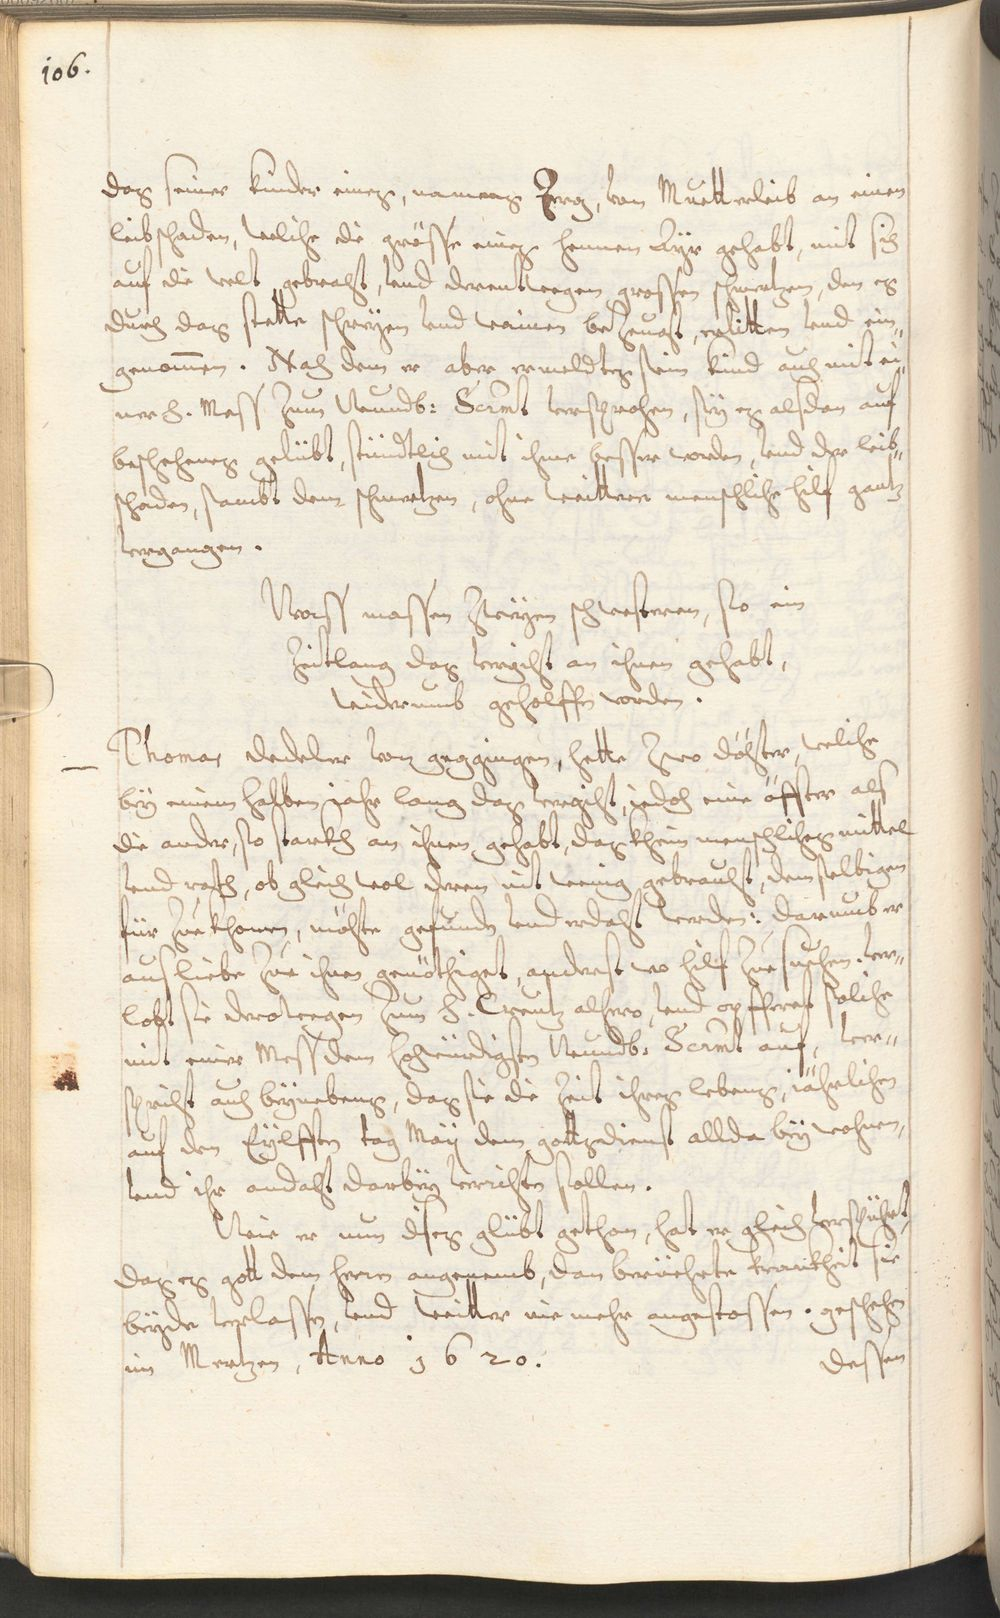 106.
das seiner kinder eines, namens Jerg, von Muetterleib an einen
leibschaden, welche die grösse eines hennen Ayr gehabt, mit sich
auf die welt gebracht, vnd derentwegen grossen schmertzen, den es
durch das stette schreyen vnd wainen bezeugt, erlitten vnd ein„
genom̅en. Nach dem er aber ermeldtes sein kind auch mit ei„
ner h. Mess zum Wundb: Scrmt versprochen, sey es alsdan auf
beschehenes gelübt, stündtlich mit ihme besser worden, vnd der leib„
schaden, sambt dem schmertzen, ohne weittere menschliche hilf gantz
vergangen.
Was massen zweyen schwesteren, so ein
Zeitlang das vergicht an ihnen gehabt,
widerumb geholffen worden.
Thomas Dedeler von geggingen, hette zwo döchter, welche
bey einem halben jahr lang das vergicht, jedoch eine öffter als
die ander, so starckh an ihnen gehabt, das khein menschliches mittel
vnd rath, ob gleich wol deren nit wenig gebraucht, demselbigen
für zue khomen, möchte gefunden vnd erdacht werden: darumb er
aus liebe zue ihnen genöthiget, anderst wo hilf zue suchen. Ver„
lobt sie derowegen zum h. Creutz alhero, vnd opfferet solche
mit einer Mess dem hochwürdigsten Wundb: Scrmt auf, ver„
spricht auch beynebens, das sie die zeit ihres lebens, jährlichen
auf den Eylfften tag Maij dem gottsdienst allda bey wohnen,
vnd ihr andacht darbey verrichten sollen.
Wie er nun dises glübt gethan, hat er gleich verspührt,
das es gott dem herrn angenemb, dan berüehrte kranckheit sie
beyde verlassen, vnd weitter nie mehr angestossen. geschehen
im Mertzen, Anno 1620.
dessen